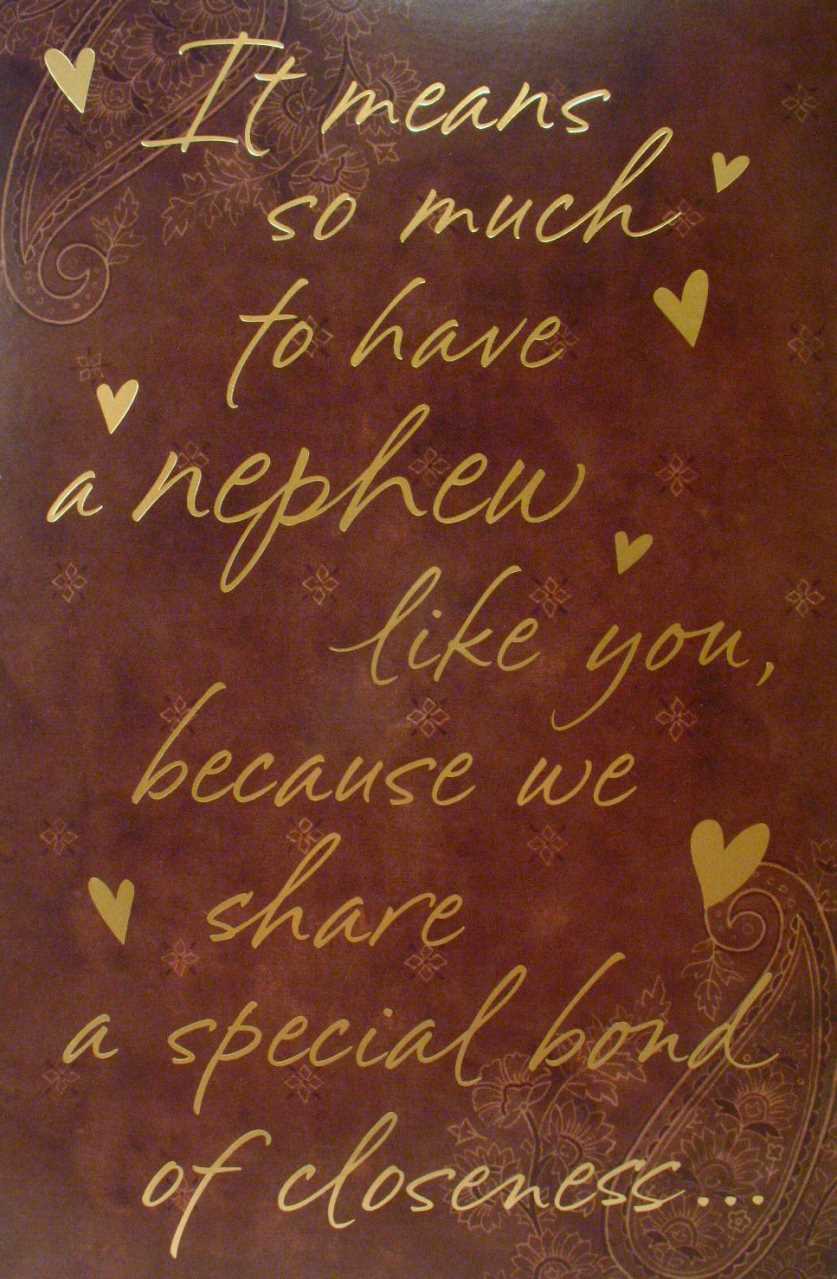 It means
so much
to have
a nephew
like you,
because we
share
a special bond
of closeness...